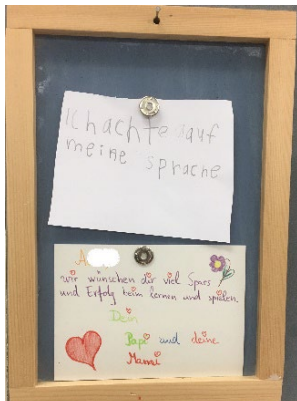 Ich achte auf
meine sprache
A
wir wünschen dir viel Spass
und Erfolg beim lernen und spielen
Dein
Papi und deine
Mami